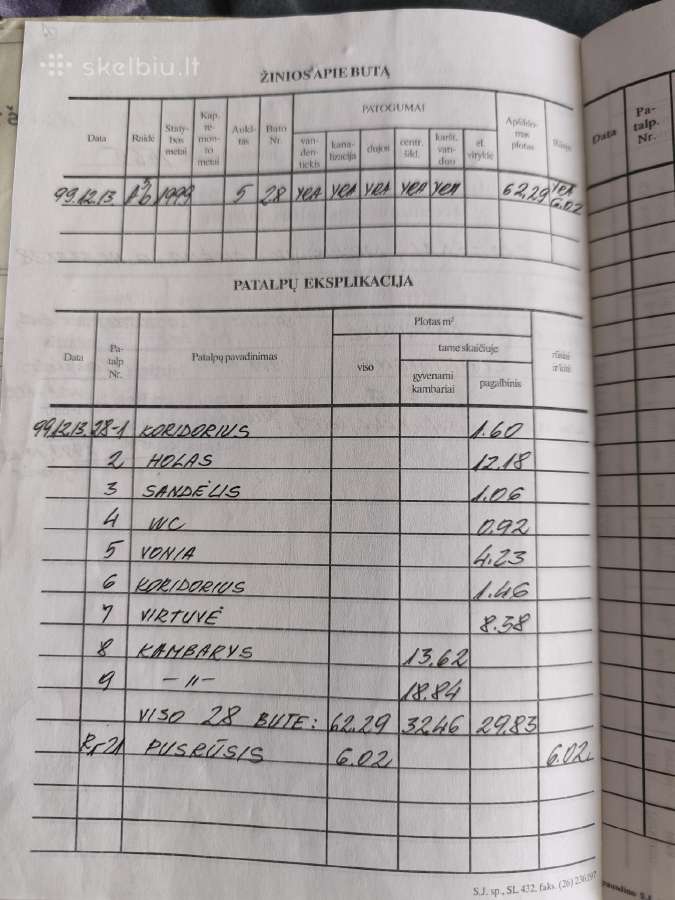 skelbiu.lt
ŽINIOS APIE BUTĄ
Data Raidė Staty-bos metai Kap. re-mon-to metai Aukš-tas Buto Nr. PATOGUMAI van-den-tiekis kana-lizacija dujos centr. šild. karšt. van-duo el. viryklė plotas Rūsys
99.12.13. 1999 5 28 yra yra yra yra yra 62,29 yra 6.02
PATALPŲ EKSPLIKACIJA
Data Pa-talp. Nr. Patalpų pavadinimas Plotas m² viso tame skaičiuje gyvenami kambariai pagalbinis
99.12.13. 28-1 KORIDORIUS 1.60
2 HOLAS 12.18
3 SANDĖLIS 1.06
4 WC 0.92
5 VONIA 4.23
6 KORIDORIUS 1.46
7 VIRTUVĖ 8.38
8 KAMBARYS 13.62
9 –"– 18.84
VISO 28 BUTE: 62.29 32.46 29.83
PUSRŪSIS 6.02 6.02
S.J. sp., SL 432, faks. (26) 236197
Data Pa-talp. Nr.